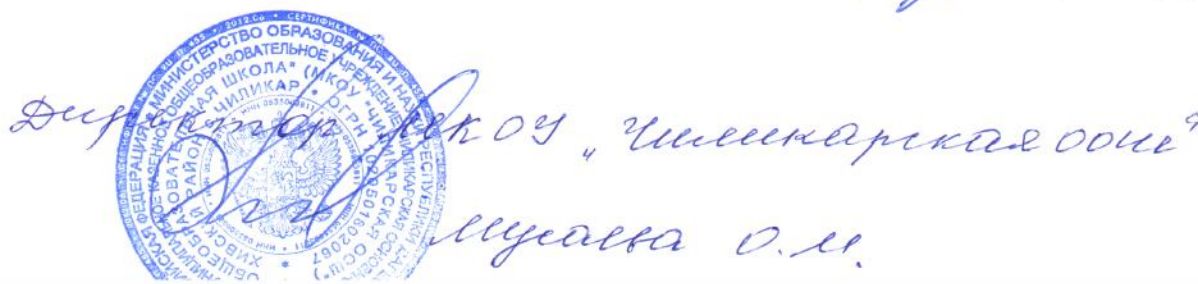 Директор МКОУ „Чиликарская ООШ"
Мусаева О.М.
РОССИЙСКАЯ ФЕДЕРАЦИЯ * МИНИСТЕРСТВО ОБРАЗОВАНИЯ И НАУКИ РЕСПУБЛИКИ
МУНИЦИПАЛЬНОЕ КАЗЕННОЕ ОБЩЕОБРАЗОВАТЕЛЬНОЕ УЧРЕЖДЕНИЕ "ЧИЛИКАРСКАЯ ОСНОВНАЯ
ОБЩЕОБРАЗОВАТЕЛЬНАЯ ШКОЛА" (МКОУ "ЧИЛИКАРСКАЯ ООШ")
ХИВСКИЙ РАЙОН С. ЧИЛИКАР * ОГРН 1020501602067